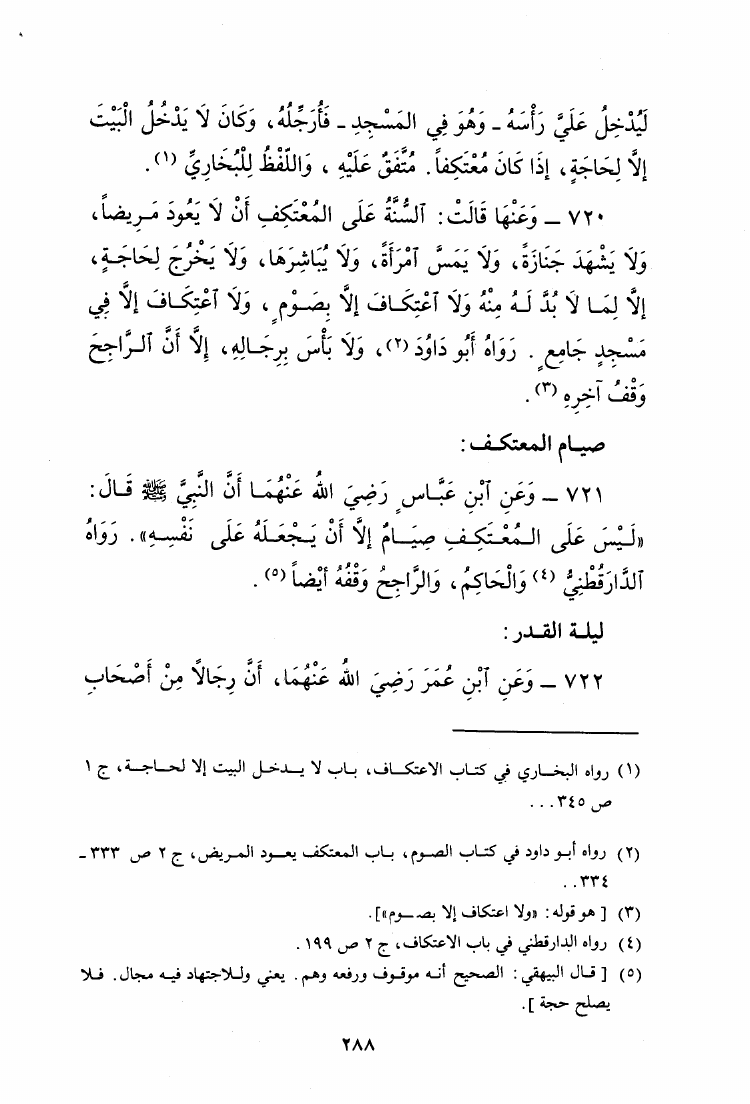 لَيُدْخِلُ عَلَيَّ رَأْسَهُ - وَهُوَ فِي المَسْجِدِ - فَأُرَجِّلُهُ، وَكَانَ لَا يَدْخُلُ الْبَيْتَ
إلَّا لِحَاجَةٍ، إذَا كَانَ مُعْتَكِفاً. مُتَّفَقٌ عَلَيْهِ، وَاللَّفْظُ لِلْبُخَارِيِّ (١).
٧٢٠ - وَعَنْهَا قَالَتْ: ٱلسُّنَّةُ عَلَى المُعْتَكِفِ أَنْ لَا يَعُودَ مَرِيضاً،
وَلَا يَشْهَدَ جَنَازَةً، وَلَا يَمَسَّ ٱمْرَأَةً، وَلَا يُبَاشِرَهَا، وَلَا يَخْرُجَ لِحَاجَةٍ،
إلَّا لِمَا لَا بُدَّ لَهُ مِنْهُ وَلَا ٱعْتِكَافَ إلَّا بِصَوْمٍ، وَلَا ٱعْتِكَافَ إلَّا فِي
مَسْجِدٍ جَامِعٍ. رَوَاهُ أَبُو دَاوُدَ (٢)، وَلَا بَأْسَ بِرِجَالِهِ، إلَّا أَنَّ ٱلرَّاجِحَ
وَقْفُ آخِرِهِ (٣).
صيام المعتكف:
٧٢١ - وَعَنِ ٱبْنِ عَبَّاسٍ رَضِيَ اللهُ عَنْهُمَا أَنَّ النَّبِيَّ ﷺ قَالَ:
«لَيْسَ عَلَى المُعْتَكِفِ صِيَامٌ إلَّا أَنْ يَجْعَلَهُ عَلَى نَفْسِهِ». رَوَاهُ
ٱلدَّارَقُطْنِيُّ (٤) وَالْحَاكِمُ، وَالرَّاجِحُ وَقْفُهُ أَيْضاً (٥).
ليلة القدر:
٧٢٢ - وَعَنِ ٱبْنِ عُمَرَ رَضِيَ اللهُ عَنْهُمَا، أَنَّ رِجَالًا مِنْ أَصْحَابِ
(١) رواه البخاري في كتاب الاعتكاف، باب لا يدخل البيت إلا لحاجة، ج ١
ص ٣٤٥...
(٢) رواه أبو داود في كتاب الصوم، باب المعتكف يعود المريض، ج ٢ ص ٣٣٣ -
٣٣٤..
(٣) [ هو قوله: «ولا اعتكاف إلا بصوم»].
(٤) رواه الدارقطني في باب الاعتكاف، ج ٢ ص ١٩٩.
(٥) [ قال البيهقي: الصحيح أنه موقوف ورفعه وهم. يعني وللاجتهاد فيه مجال. فلا
يصلح حجة ].
٢٨٨